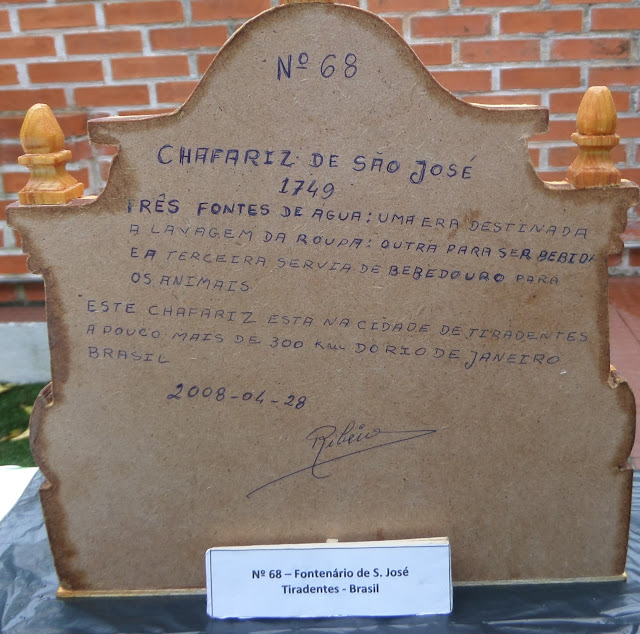 Nº 68
CHAFARIZ DE SÃO JOSÉ
1749
TRÊS FONTES DE AGUA: UMA ERA DESTINADA
A LAVAGEM DA ROUPA: OUTRA PARA SER BEBIDA
E A TERCEIRA SERVIA DE BEBEDOURO PARA
OS ANIMAIS
ESTE CHAFARIZ ESTA NA CIDADE DE TIRADENTES
A POUCO MAIS DE 300 Km DO RIO DE JANEIRO
BRASIL
2008-04-28
Ribeiro
Nº 68 – Fontenário de S. José
Tiradentes - Brasil